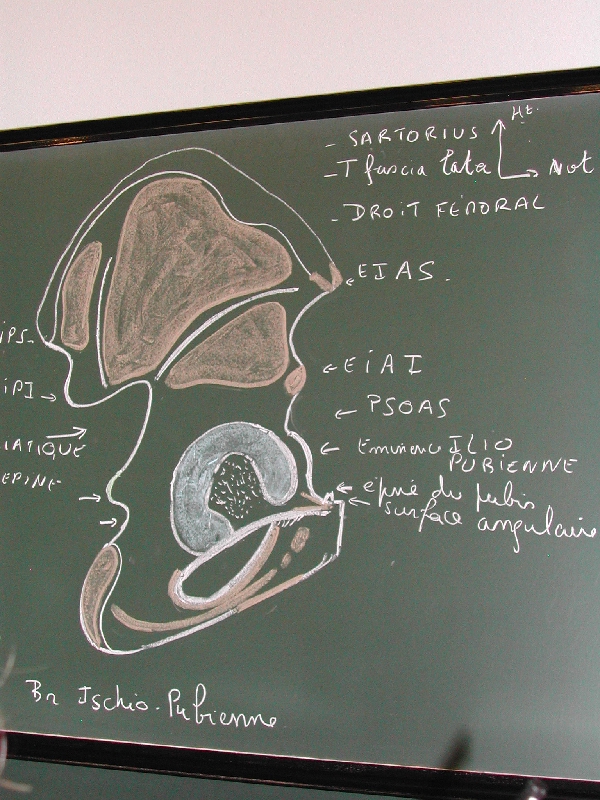 Ht.
- SARTORIUS
- T fascia lata
Not
- DROIT FEMORAL
EIAS.
iPS-
EiAI
iPI
PSOAS
IATIQUE
Eminence ILIO
PUBIENNE
EPINE
epine du pubis
surface angulaire
Br Ischio-Pubienne